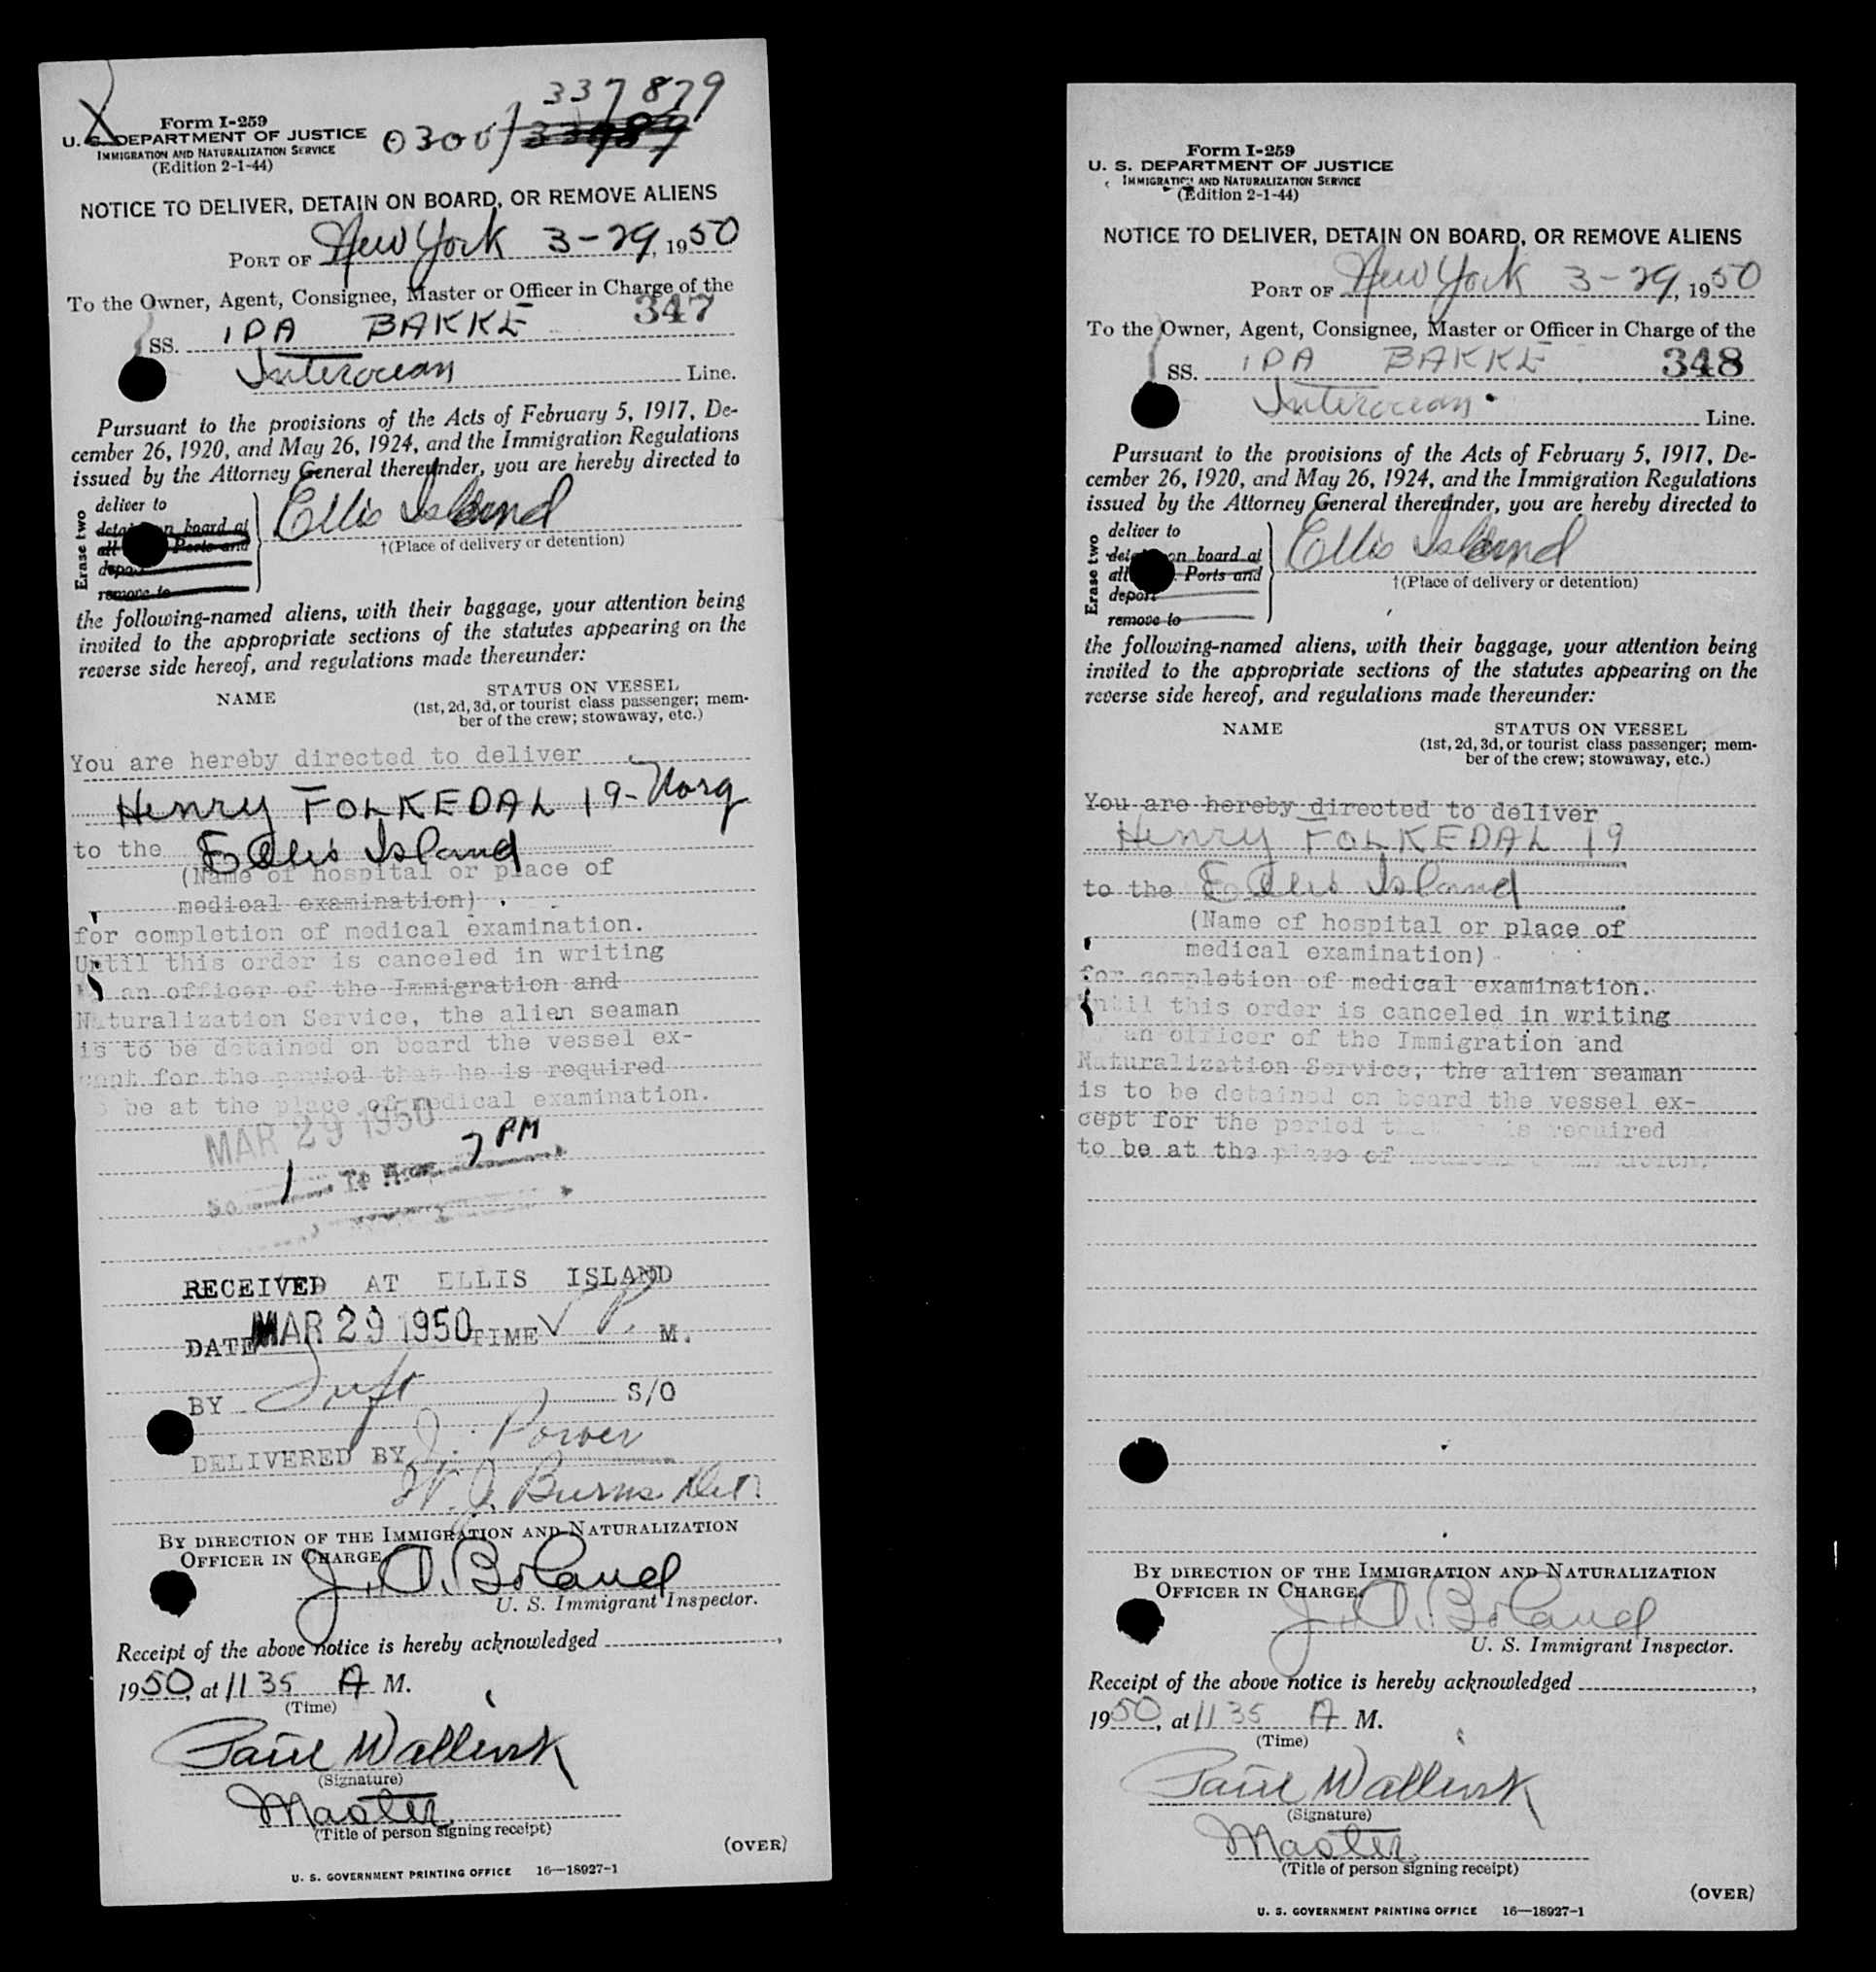 337879
Form I-259
U. S. DEPARTMENT OF JUSTICE
IMMIGRATION AND NATURALIZATION SERVICE
(Edition 2-1-44)
NOTICE TO DELIVER, DETAIN ON BOARD, OR REMOVE ALIENS
PORT OF New York 3-29, 1950
To the Owner, Agent, Consignee, Master or Officer in Charge of the
347
SS. IDA BAKKE
Interocean Line.
Pursuant to the provisions of the Acts of February 5, 1917, De-
cember 26, 1920, and May 26, 1924, and the Immigration Regulations
issued by the Attorney General thereunder, you are hereby directed to
Erase two
deliver to
on board at
all Ports and
remove to
Ellis Island
†(Place of delivery or detention)
the following-named aliens, with their baggage, your attention being
invited to the appropriate sections of the statutes appearing on the
reverse side hereof, and regulations made thereunder:
NAME STATUS ON VESSEL
(1st, 2d, 3d, or tourist class passenger; mem-
ber of the crew; stowaway, etc.)
You are hereby directed to deliver
Henry FOLKEDAL 19-Norg
to the Ellis Island
(Name of hospital or place of
medical examination)
for completion of medical examination.
Until this order is canceled in writing
an officer of the Immigration and
Naturalization Service, the alien seaman
is to be detained on board the vessel ex-
cept for the period that he is required
be at the place of medical examination.
MAR 29 1950
7 PM
1
RECEIVED AT ELLIS ISLAND
DATE MAR 29 1950 TIME P. M.
BY S/O
DELIVERED BY J. Power
W. J. Burns Det.
BY DIRECTION OF THE IMMIGRATION AND NATURALIZATION
OFFICER IN CHARGE
J. A. Boland
U. S. Immigrant Inspector.
Receipt of the above notice is hereby acknowledged ,
1950, at 11 35 A M.
(Time)
Paul Wallink
(Signature)
Master
(Title of person signing receipt)
(OVER)
U. S. GOVERNMENT PRINTING OFFICE 16—18927-1
Form I-259
U. S. DEPARTMENT OF JUSTICE
IMMIGRATION AND NATURALIZATION SERVICE
(Edition 2-1-44)
NOTICE TO DELIVER, DETAIN ON BOARD, OR REMOVE ALIENS
PORT OF New York 3-29, 1950
To the Owner, Agent, Consignee, Master or Officer in Charge of the
SS. IDA BAKKE 348
Interocean Line.
Pursuant to the provisions of the Acts of February 5, 1917, De-
cember 26, 1920, and May 26, 1924, and the Immigration Regulations
issued by the Attorney General thereunder, you are hereby directed to
Erase two
deliver to
on board at
all Ports and
deport
remove to
Ellis Island
†(Place of delivery or detention)
the following-named aliens, with their baggage, your attention being
invited to the appropriate sections of the statutes appearing on the
reverse side hereof, and regulations made thereunder:
NAME STATUS ON VESSEL
(1st, 2d, 3d, or tourist class passenger; mem-
ber of the crew; stowaway, etc.)
You are hereby directed to deliver
Henry FOLKEDAL 19
to the Ellis Island
(Name of hospital or place of
medical examination)
for completion of medical examination.
Until this order is canceled in writing
an officer of the Immigration and
Naturalization Service, the alien seaman
is to be detained on board the vessel ex-
cept for the period that is required
to be at the place of
BY DIRECTION OF THE IMMIGRATION AND NATURALIZATION
OFFICER IN CHARGE.
J. A. Boland
U. S. Immigrant Inspector.
Receipt of the above notice is hereby acknowledged ,
1950, at 11 35 A M.
(Time)
Paul Wallink
(Signature)
Master
(Title of person signing receipt)
(OVER)
U. S. GOVERNMENT PRINTING OFFICE 16—18927-1